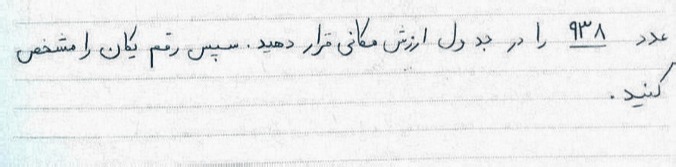 عدد ۹۳۸ را در جدول ارزش مکانی قرار دهید. سپس رقم یکان را مشخص
کنید.